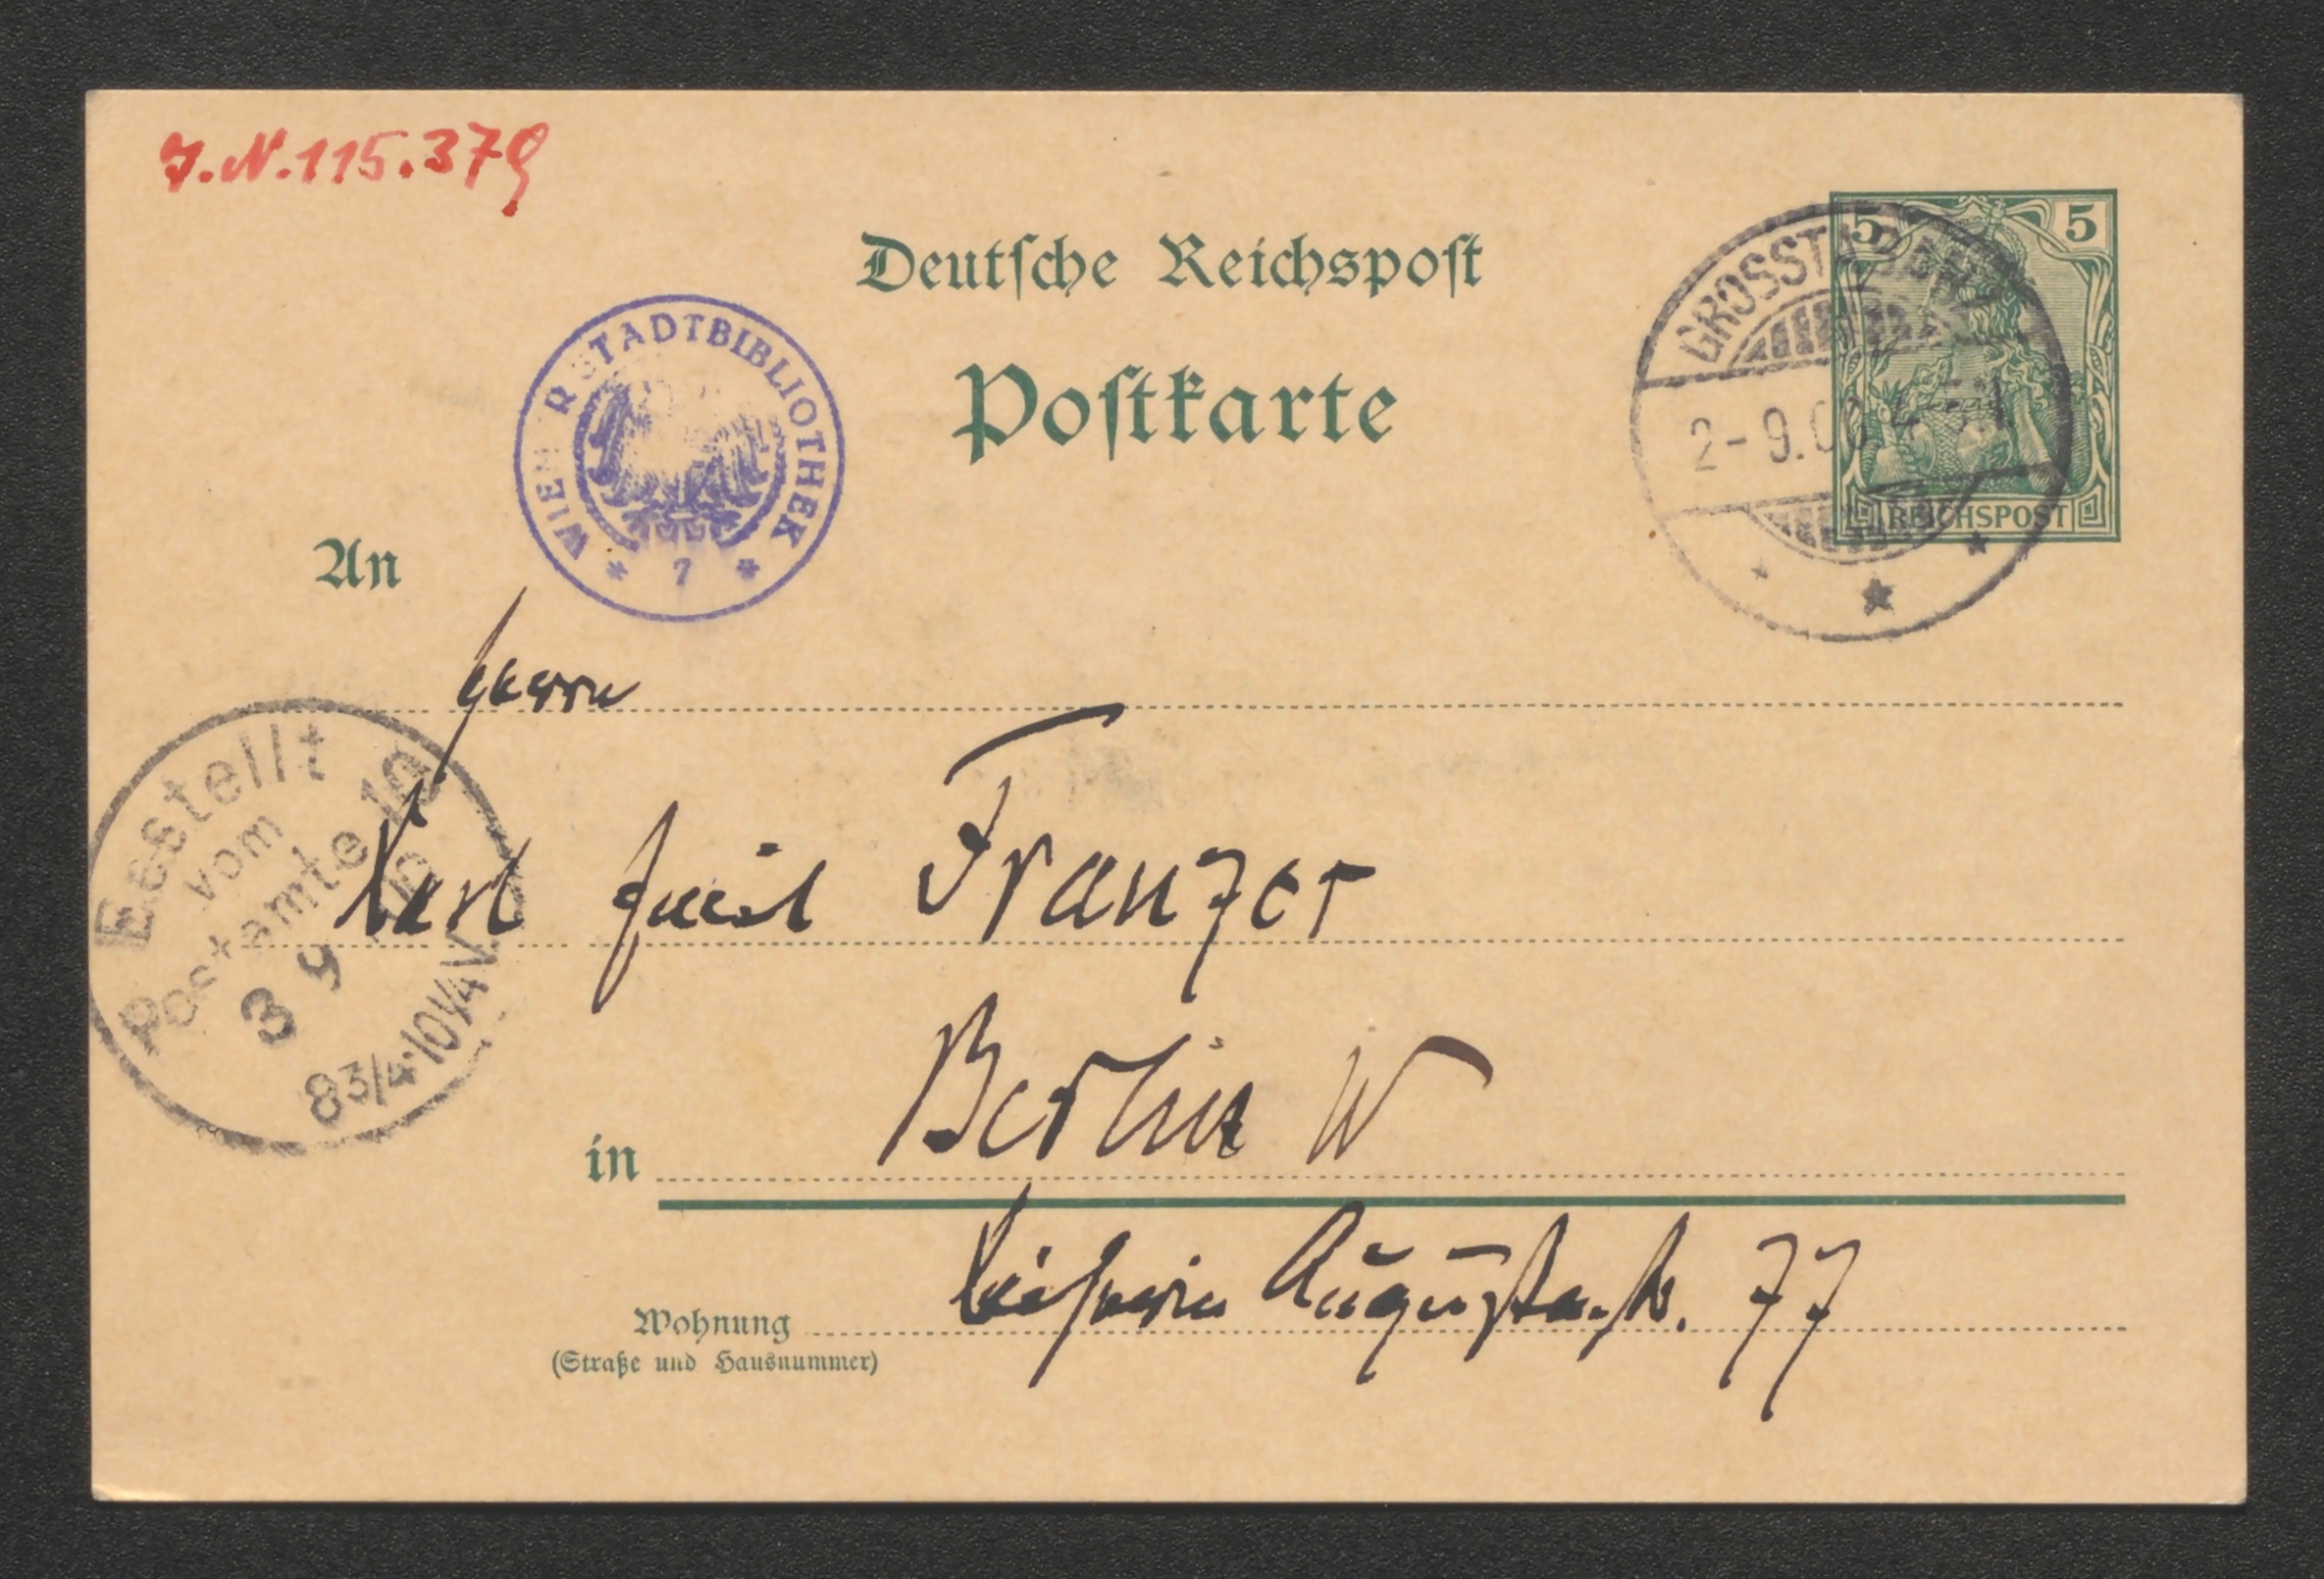 J.N.115.379
Deutsche Reichspost
Postkarte
5 5
REICHSPOST
2-9.0
WIENER STADTBIBLIOTHEK
* 7 *
An
Herrn
Karl Emil Franzos
Bestellt
vom
Postamte 10
3 9
8 3/4-10 1/4 V.
in Berlin W
Kaiserin Augusta-str. 77
Wohnung
(Straße und Hausnummer)